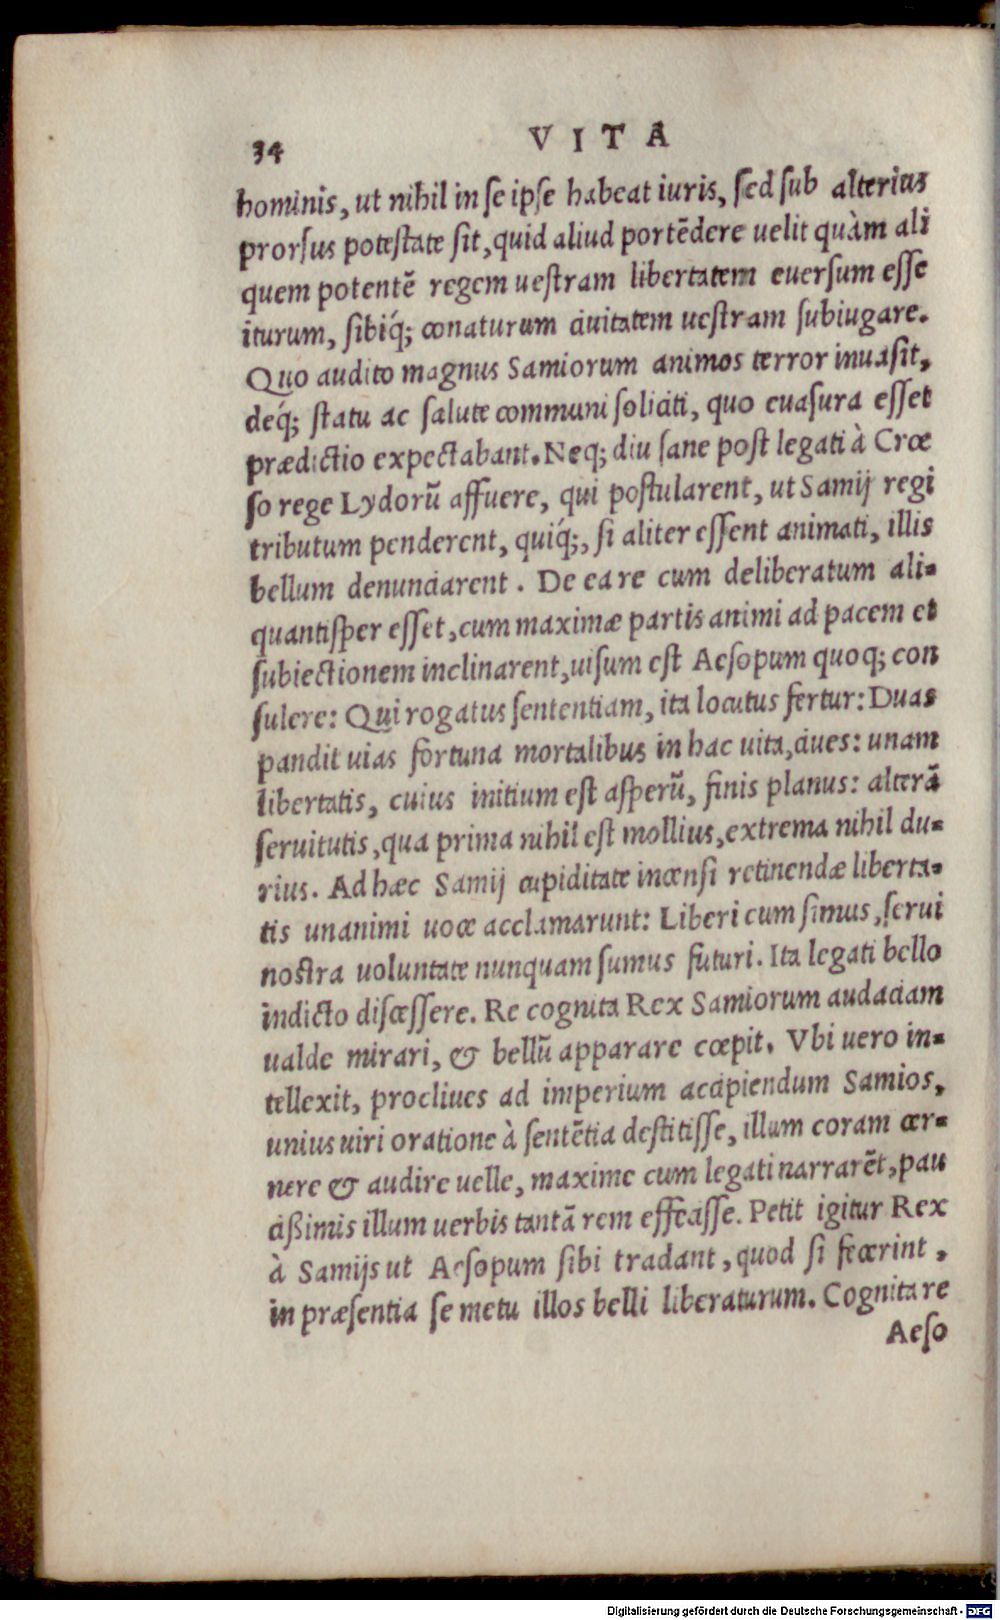 34 VITA
hominis, ut nihil in se ipse habeat iuris, sed sub alterius
prorsus potestate sit, quid aliud portēdere uelit quàm ali
quem potentē regem uestram libertatem euersum esse
iturum, sibiq́; conaturum ciuitatem uestram subiugare.
Quo audito magnus Samiorum animos terror inuasit,
deq́; statu ac salute communi soliciti, quo euasura esset
prædictio expectabant. Neq; diu sane post legati à Crœ
so rege Lydorū affuere, qui postularent, ut Samij regi
tributum penderent, quiq́;, si aliter essent animati, illis
bellum denunciarent. De ea re cum deliberatum ali-
quantisper esset, cum maximæ partis animi ad pacem et
subiectionem inclinarent, uisum est Aesopum quoq; con
sulere: Qui rogatus sententiam, ita locutus fertur: Duas
pandit uias fortuna mortalibus in hac uita, ciues: unam
libertatis, cuius initium est asperū, finis planus: alterā
seruitutis, qua prima nihil est mollius, extrema nihil du-
rius. Ad hæc Samij cupiditate incensi retinendæ liberta-
tis unanimi uoce acclamarunt: Liberi cum simus, serui
nostra uoluntate nunquam sumus futuri. Ita legati bello
indicto discessere. Re cognita Rex Samiorum audaciam
ualde mirari, & bellū apparare cœpit. Vbi uero in-
tellexit, procliues ad imperium accipiendum Samios,
unius uiri oratione à sentētia destitisse, illum coram cer-
nere & audire uelle, maxime cum legati narrarēt, pau
cißimis illum uerbis tantā rem effecisse. Petit igitur Rex
à Samijs ut Aesopum sibi tradant, quod si fecerint,
in præsentia se metu illos belli liberaturum. Cognita re
Aeso
Digitalisierung gefördert durch die Deutsche Forschungsgemeinschaft - DFG